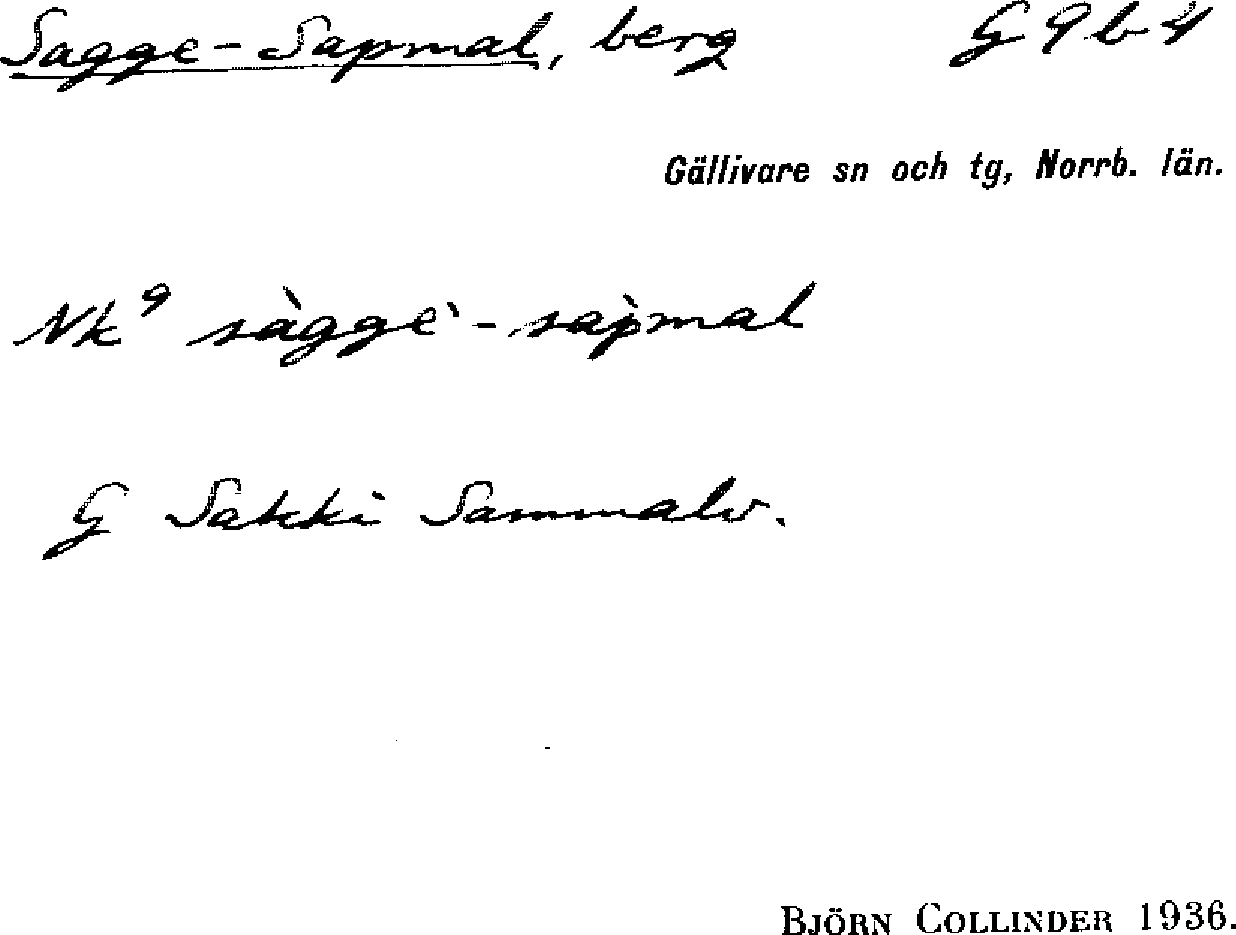 Sagge-Sapmal, berg G 9 b 4
Gällivare sn och tg, Norrb. län.
Nk⁹ sàgge`-sàpmal
G Sakki Sammalv.
BJÖRN COLLINDER 1936.